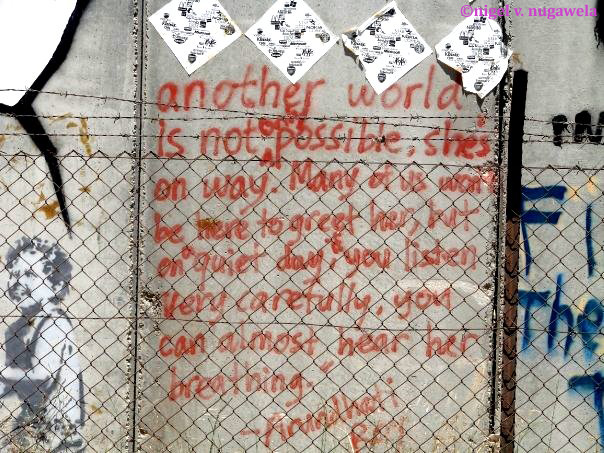 ©nigel v. nugawela
another world
is not possible, she's
on way. Many of us won't
be here to greet her, but
on a quiet day, you listen
very carefully, you
can almost hear her
breathing."
—Arundhati
Roy
FI
The
T